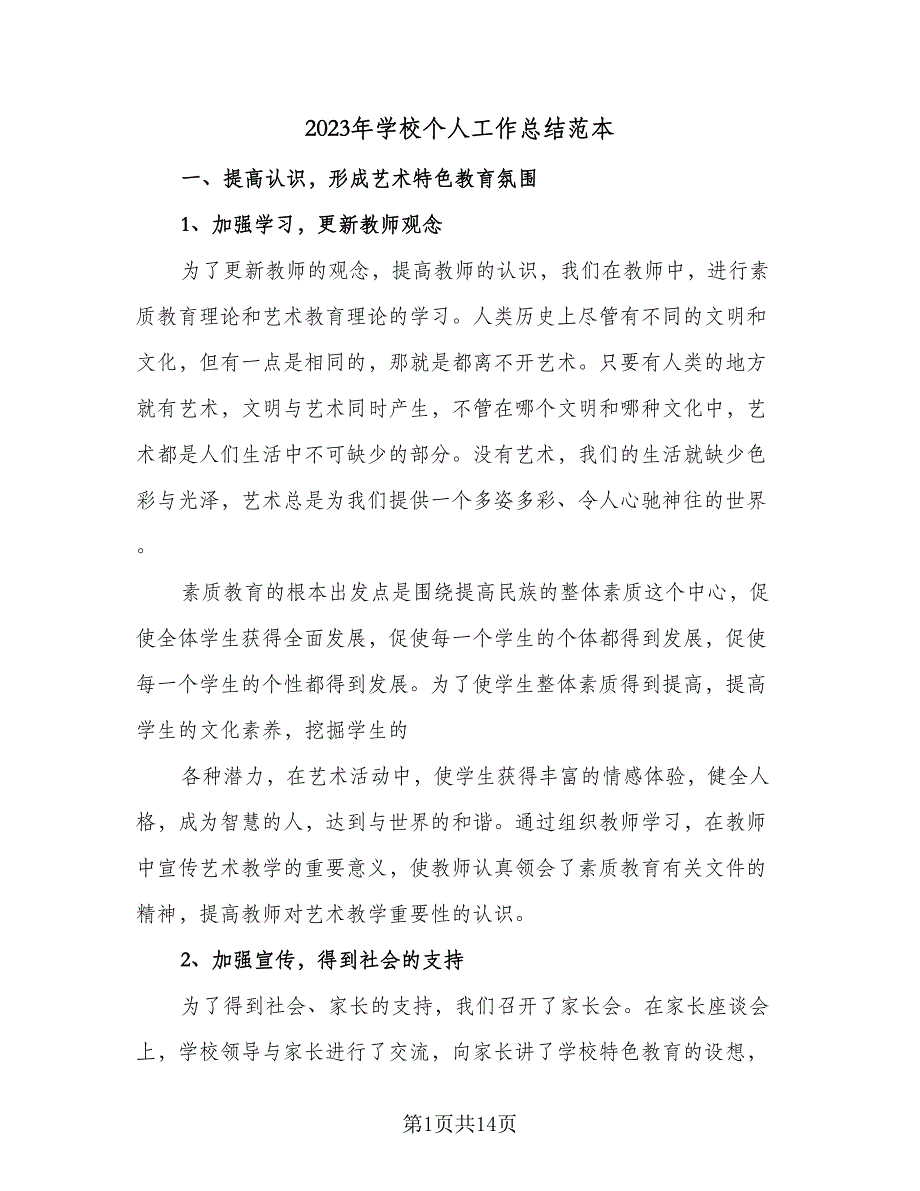 2023年学校个人工作总结范本
一、提高认识，形成艺术特色教育氛围
1、加强学习，更新教师观念
为了更新教师的观念，提高教师的认识，我们在教师中，进行素
质教育理论和艺术教育理论的学习。人类历史上尽管有不同的文明和
文化，但有一点是相同的，那就是都离不开艺术。只要有人类的地方
就有艺术，文明与艺术同时产生，不管在哪个文明和哪种文化中，艺
术都是人们生活中不可缺少的部分。没有艺术，我们的生活就缺少色
彩与光泽，艺术总是为我们提供一个多姿多彩、令人心驰神往的世界
。
素质教育的根本出发点是围绕提高民族的整体素质这个中心，促
使全体学生获得全面发展，促使每一个学生的个体都得到发展，促使
每一个学生的个性都得到发展。为了使学生整体素质得到提高，提高
学生的文化素养，挖掘学生的
各种潜力，在艺术活动中，使学生获得丰富的情感体验，健全人
格，成为智慧的人，达到与世界的和谐。通过组织教师学习，在教师
中宣传艺术教学的重要意义，使教师认真领会了素质教育有关文件的
精神，提高教师对艺术教学重要性的认识。
2、加强宣传，得到社会的支持
为了得到社会、家长的支持，我们召开了家长会。在家长座谈会
上，学校领导与家长进行了交流，向家长讲了学校特色教育的设想，
第1页共14页